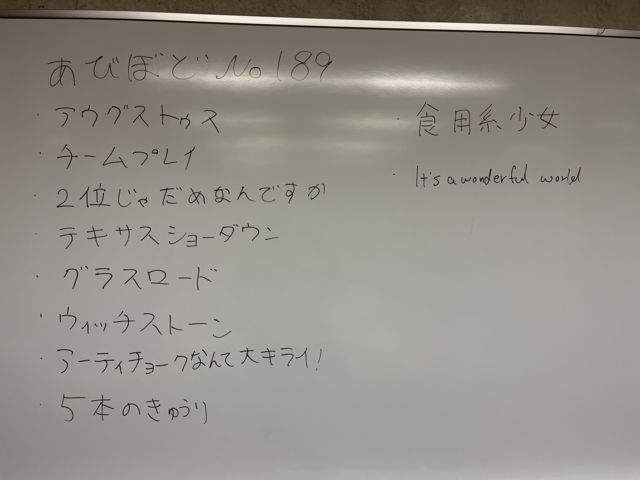 あびぼど No189
・アウグストゥス
・チームプレイ
・2位じゃだめなんですか
・テキサスショーダウン
・グラスロード
・ウィッチストーン
・アーティチョークなんて大キライ!
・5本のきゅうり
・食用系少女
・It's a wonderful world